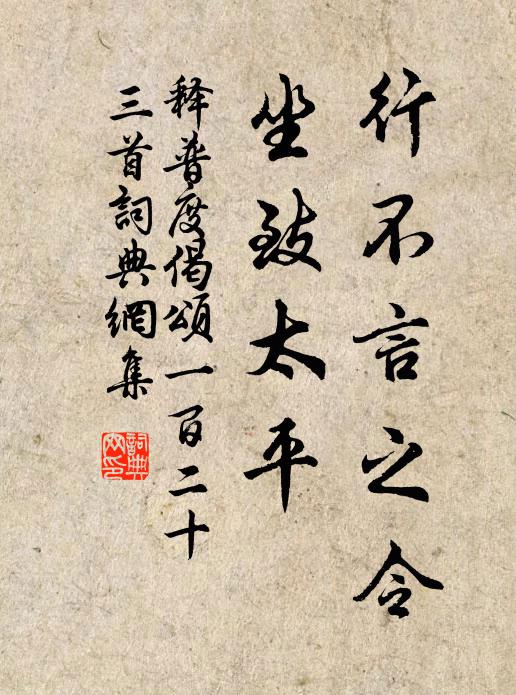 行不言之令
坐致太平
释普度偈頌一百二十
三首詞典網集
詞典
网印